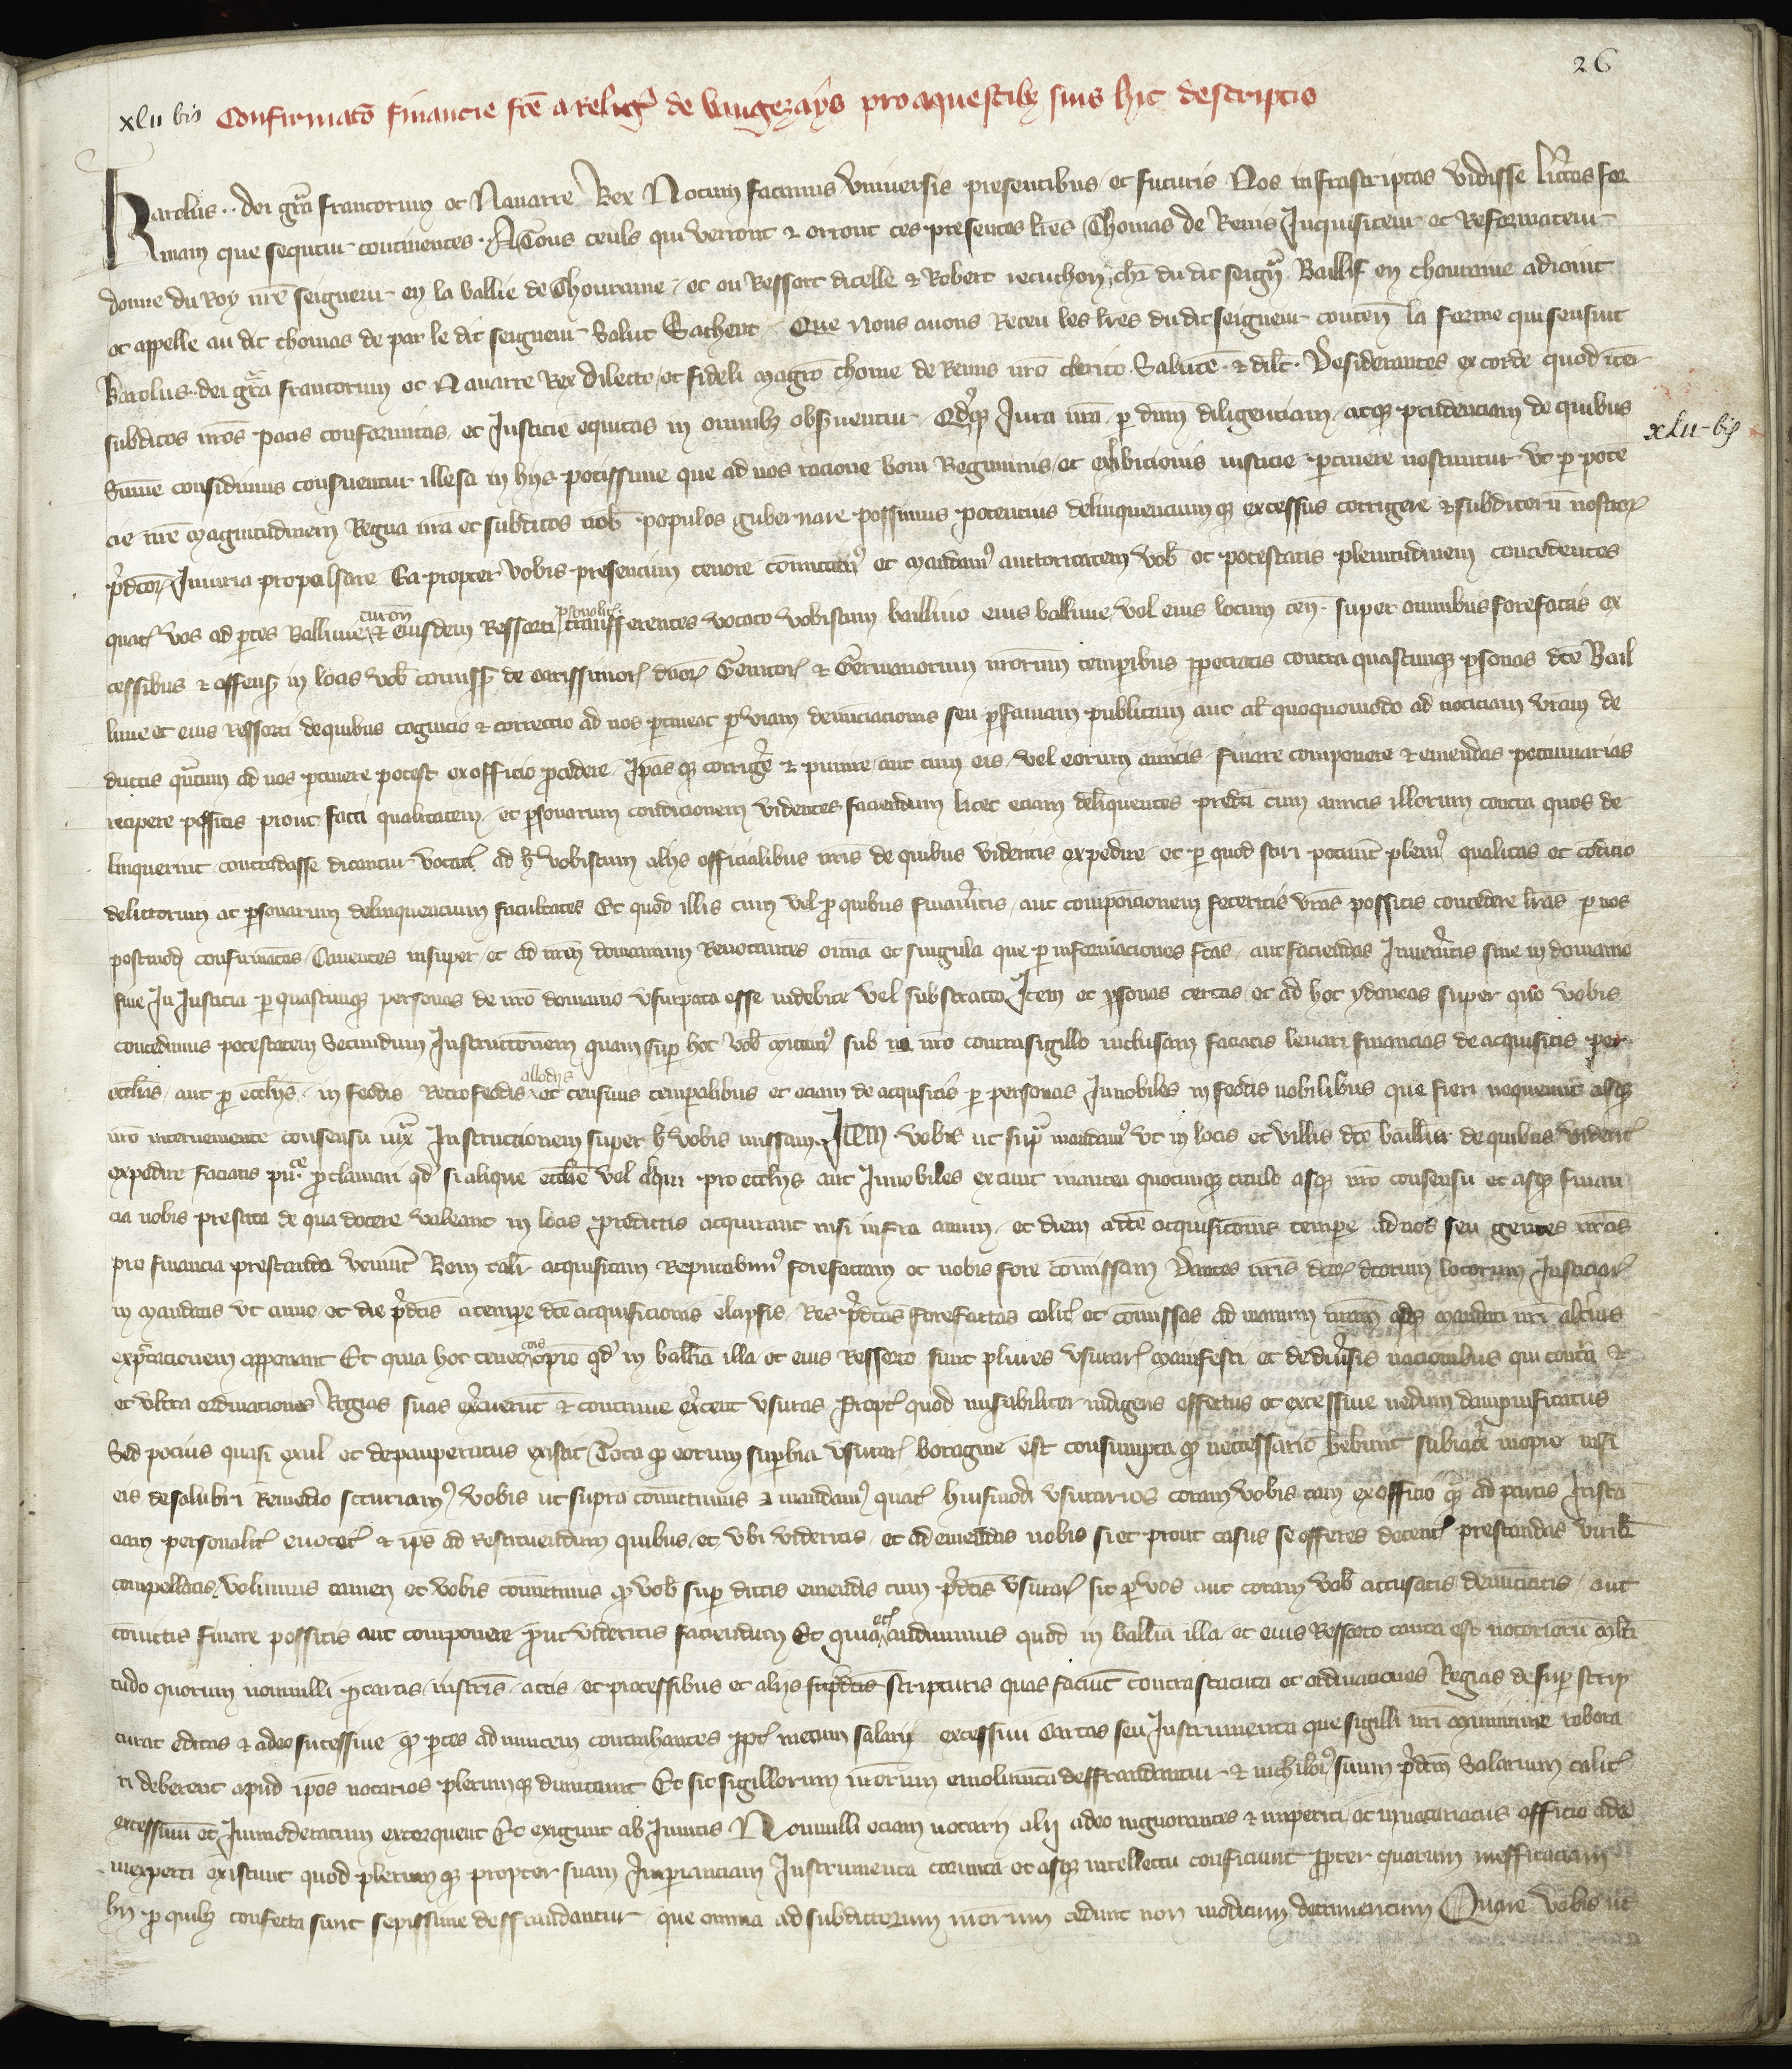 26
xlii bis Confirmatō financie fc̄e a Relig' de vaugezays pro aquestibz suis hic descriptis
Karolus .. dei gr̄a francorum et Nauarre Rex Notum facimus Vniuersis presentibus et futuris Nos infrascriptas vidisse litt̄as for
mam que sequitur continentes . A Tous ceuls qui verront & orront ces presentes lr̄es Thomas de Reins Inquisiteur et Reformateur
donne du Roy nr̄e seigneur en la ballie de Thouraine et ou Ressort dicelle & Robert chl'r du dit seign' Baillif en thouraine adioint
et appelle au dit thomas de par le dit seigneur Salut Sachent Que nous auons Receu les lr̄es du dit seigneur conten̄ la forme qui sensuit
Karolus .. dei gr̄a francorum et Nauarre Rex Dilecto et fideli magrō thome de Remis nr̄o clerico Salutē & dil̄c . Desiderantes ex corde quod int'
subditos nr̄os pacis conformitas et Iusticie equitas in omnibz obs'uentur Qd'qz Iura nr̄a p dūm diligenciam atqz prudenciam de quibus
xlii-bis
Sūme confidimus consuentur illesa in hijs potissime que ad nos racione boni Regiminis et exhibicionis iusticie p'tinere noscuntur vt p potē
cie nr̄e magnitudinem Regna nr̄a et subditos nob̄ populos gubernare possimus potencius delinquenciumqz excessus corrigere & subditorū nostror'
p'dc̄or' Iniuria propulsare Ea propter vobis presencium tenore cōmittim' et mandam' auctoritatem vob̄ et potestatis plenitudinem concedentes
quat' vos ad p'tes Balliuie turon̄ & eiusdem Ressorti p'sonalit' transferentes vocato vobiscum balliuo eius balliuie vel eius locum ten̄ . super omnibus forefactis ex
cessibus & offensis in locis vob̄ comiss' de carissimor' dn̄or' Genitor' & Germanorum nr̄orum temporibus p'petratis contra quascunqz p'sonas dc̄e Bail
liuie et eius Ressorti de quibus cognicio & correctio ad nos p'tineat p viam denunciacionis seu p famam publicam aut al' quoquomodo ad noticiam vr̄am de
ductis qntum ad nos p'tinere potest ex officio p'cedere Ip̄as qz corrig'e & punire aut cum eis vel eorum amicis finare componere & emendas pecuniarias
recipere possitis prout facti qualitatem et p'sonarum condicionem videritis faciendum licet eciam delinquentes predc̄i cum amicis illorum contra quos de
linquerint concordasse dicantur vocat' ad h' vobiscum alijs officialibus nr̄is de quibus videritis expedire et p quod sciri poterit pleni' qualitas et cōdicio
delictorum ac p'sonarum delinquencium facultates Et quod illis cum vel p quibus finau'itis aut composicionem feceritis vr̄as possitis concedere lr̄as p nos
postmod' confirmatas Cauentes insuper et ad nr̄m domanium Reuocantes omnia et singula que p informaciones fc̄as aut faciendas Inuen'itis siue in domanio
siue In Iusticia p quascunqz personas de nr̄o domanio vsurpata esse indebite vel subtracta Item et p'sonas certas et ad hoc ydoneas super quo vobis
concedimus potestatem Secundum Instructionem quam sup hoc vob̄ mittim' sub nr̄o contrasigillo inclusam faciatis leuari financias de acquisitis per
ecc̄lias aut p ecc̄lijs in feodis Retrofeodis allodijs et censiuis temporalibus et eciam de acquisitis p personas Innobiles in feodis nobilibus que fieri nequeunt absqz
nr̄o interueniente consensu iux̄ Instructionem super h' vobis missam Item vobis ut sup' mandam' vt in locis et villis dc̄e balliuie de quibus viderit'
expedire faciatis pu'ce p'clamari qd' si alique ecc̄lie vel aliqui pro ecc̄lijs aut Innobiles ex nunc inantea quocunqz titulo absqz nr̄o consensu et absqz finan
cia nobis prestita de qua docere valeant in locis predictis acquirant nisi infra annum et diem a dc̄e acquisicionis tempore ad nos seu gentes nr̄as
pro financia prestanda venint Rem talit' acquisitam Reputabim' forefactam et nobis fore cōmissam Dantes nr̄is dc̄or' locorum Iusticiar'
in mandatis vt anno et die p'dc̄is a tempore dc̄e acquisicionis elapsis Res p'dc̄as forefactas talit' et cōmissas ad manum nr̄am absqz mandati nr̄i alt'ius
exp'tacionem apponant Et quia hoc qd' in ballia illa et eius Ressorto sunt plures vsurar' manifesti et de diu'sis nacionibus qui contra &
et vltra ordinaciones Regias suas ex'cuerūt & continue ex'cent vsuras Propt' quod mis'abiliter indigens effectus et excessiue nedum dampnificatus
Sed pocius quasi exul et depauperatus existit Tota p eorum superbia vsurar' voragine est consumpta qz necessario habent subiac'e inopie nisi
eis de salubri Remedio succuriam' vobis ut supra cōmittimus & mandam' quat' huiusmodi vsurarios coram vobis tam ex officio qm ad partis Instā
ciam personalit' euocet' & ip̄s ad Restituendum quibus et vbi videritis et ad emendas nobis si et prout casus se offeres decent' prestandas virili'
compellatis volumus tamen et vobis cōmittimus qz vob̄ sup dictis emendis cum p'dc̄is vsurar' sic p vos aut coram vob̄ accusatis denūciatis aut
cōuictis finare possitis aut componere p'ut videritis faciendum Et quia ecī audiuimus quod in ballia illa et eius Ressorto tanta est notariorū m'lti
tudo quorum nonnulli p cartis instr̄is actis et processibus et alijs scripturis quas faciūt contra statuta et ordinaciones Regias desup scrip
turat' editas & adeo sucessiue qz p'tes ad inuicem contrahentes p'pt' metum salarij excessiui Cartas seu Instrumenta que sigilli nr̄i munimine robora
ri deberent apud ip̄os notarios plerumqz dimittunt Et sic sigillorum nr̄orum emolumēta deffraudantur & nichilo' suum p'dc̄m Salarium talit'
excessiuū et Inmoderatum extorquent Et exigunt ab Inuitis Nonnulli eciam notarij alij adeo ingnorantes & imperiti et in notariatus officio adeo
inexperti existunt quod plerumqz propter suam Imp'iciam Instrumenta corrupta et absqz intellectu conficiunt p'pter quorum inefficaciam
hij p quibz confecta sunt sepissime deffraudantur que omnia ad subditorum nr̄orum cedunt non modicum detrimentum Quare vobis ut